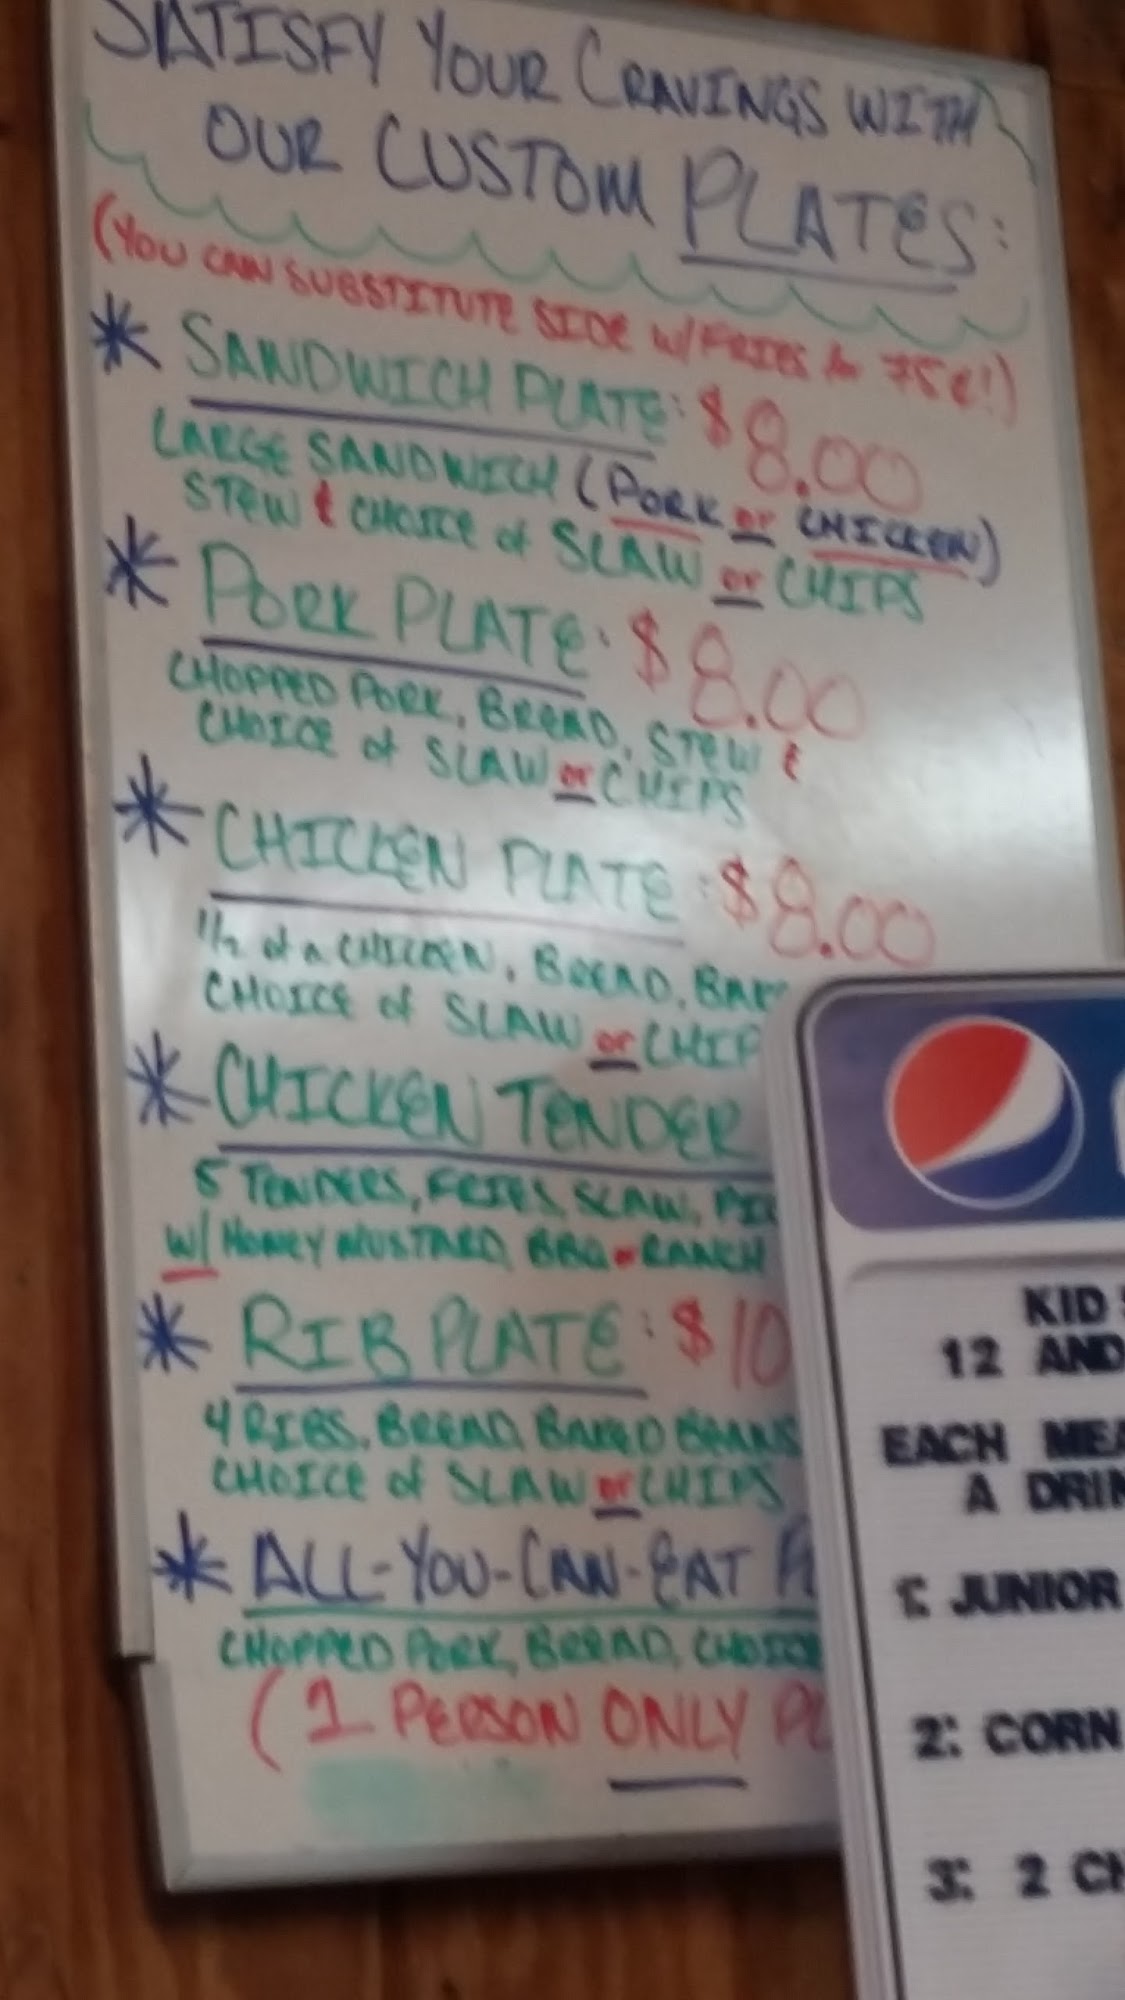 SATISFY YOUR CRAVINGS WITH
OUR CUSTOM PLATES:
(YOU CAN SUBSTITUTE SIDE W/FRIES for 75¢!)
* SANDWICH PLATE: $8.00
LARGE SANDWICH (PORK or CHICKEN)
STEW & CHOICE of SLAW or CHIPS
* PORK PLATE: $8.00
CHOPPED PORK, BREAD, STEW &
CHOICE of SLAW or CHIPS
* CHICKEN PLATE: $8.00
1/2 of a CHICKEN, BREAD,
CHOICE of SLAW or CHIP
* CHICKEN TENDER
5 TENDERS, FRIES, SLAW,
W/ HONEY MUSTARD, BBQ or RANCH
* RIB PLATE: $10
4 RIBS, BREAD, BAKED BEANS
CHOICE of SLAW or CHIPS
* ALL-YOU-CAN-EAT
CHOPPED PORK, BREAD, CHOICE
(1 PERSON ONLY PL
KID
12 AND
EACH MEA
A DRIN
1: JUNIOR
2: CORN
3: 2 CH